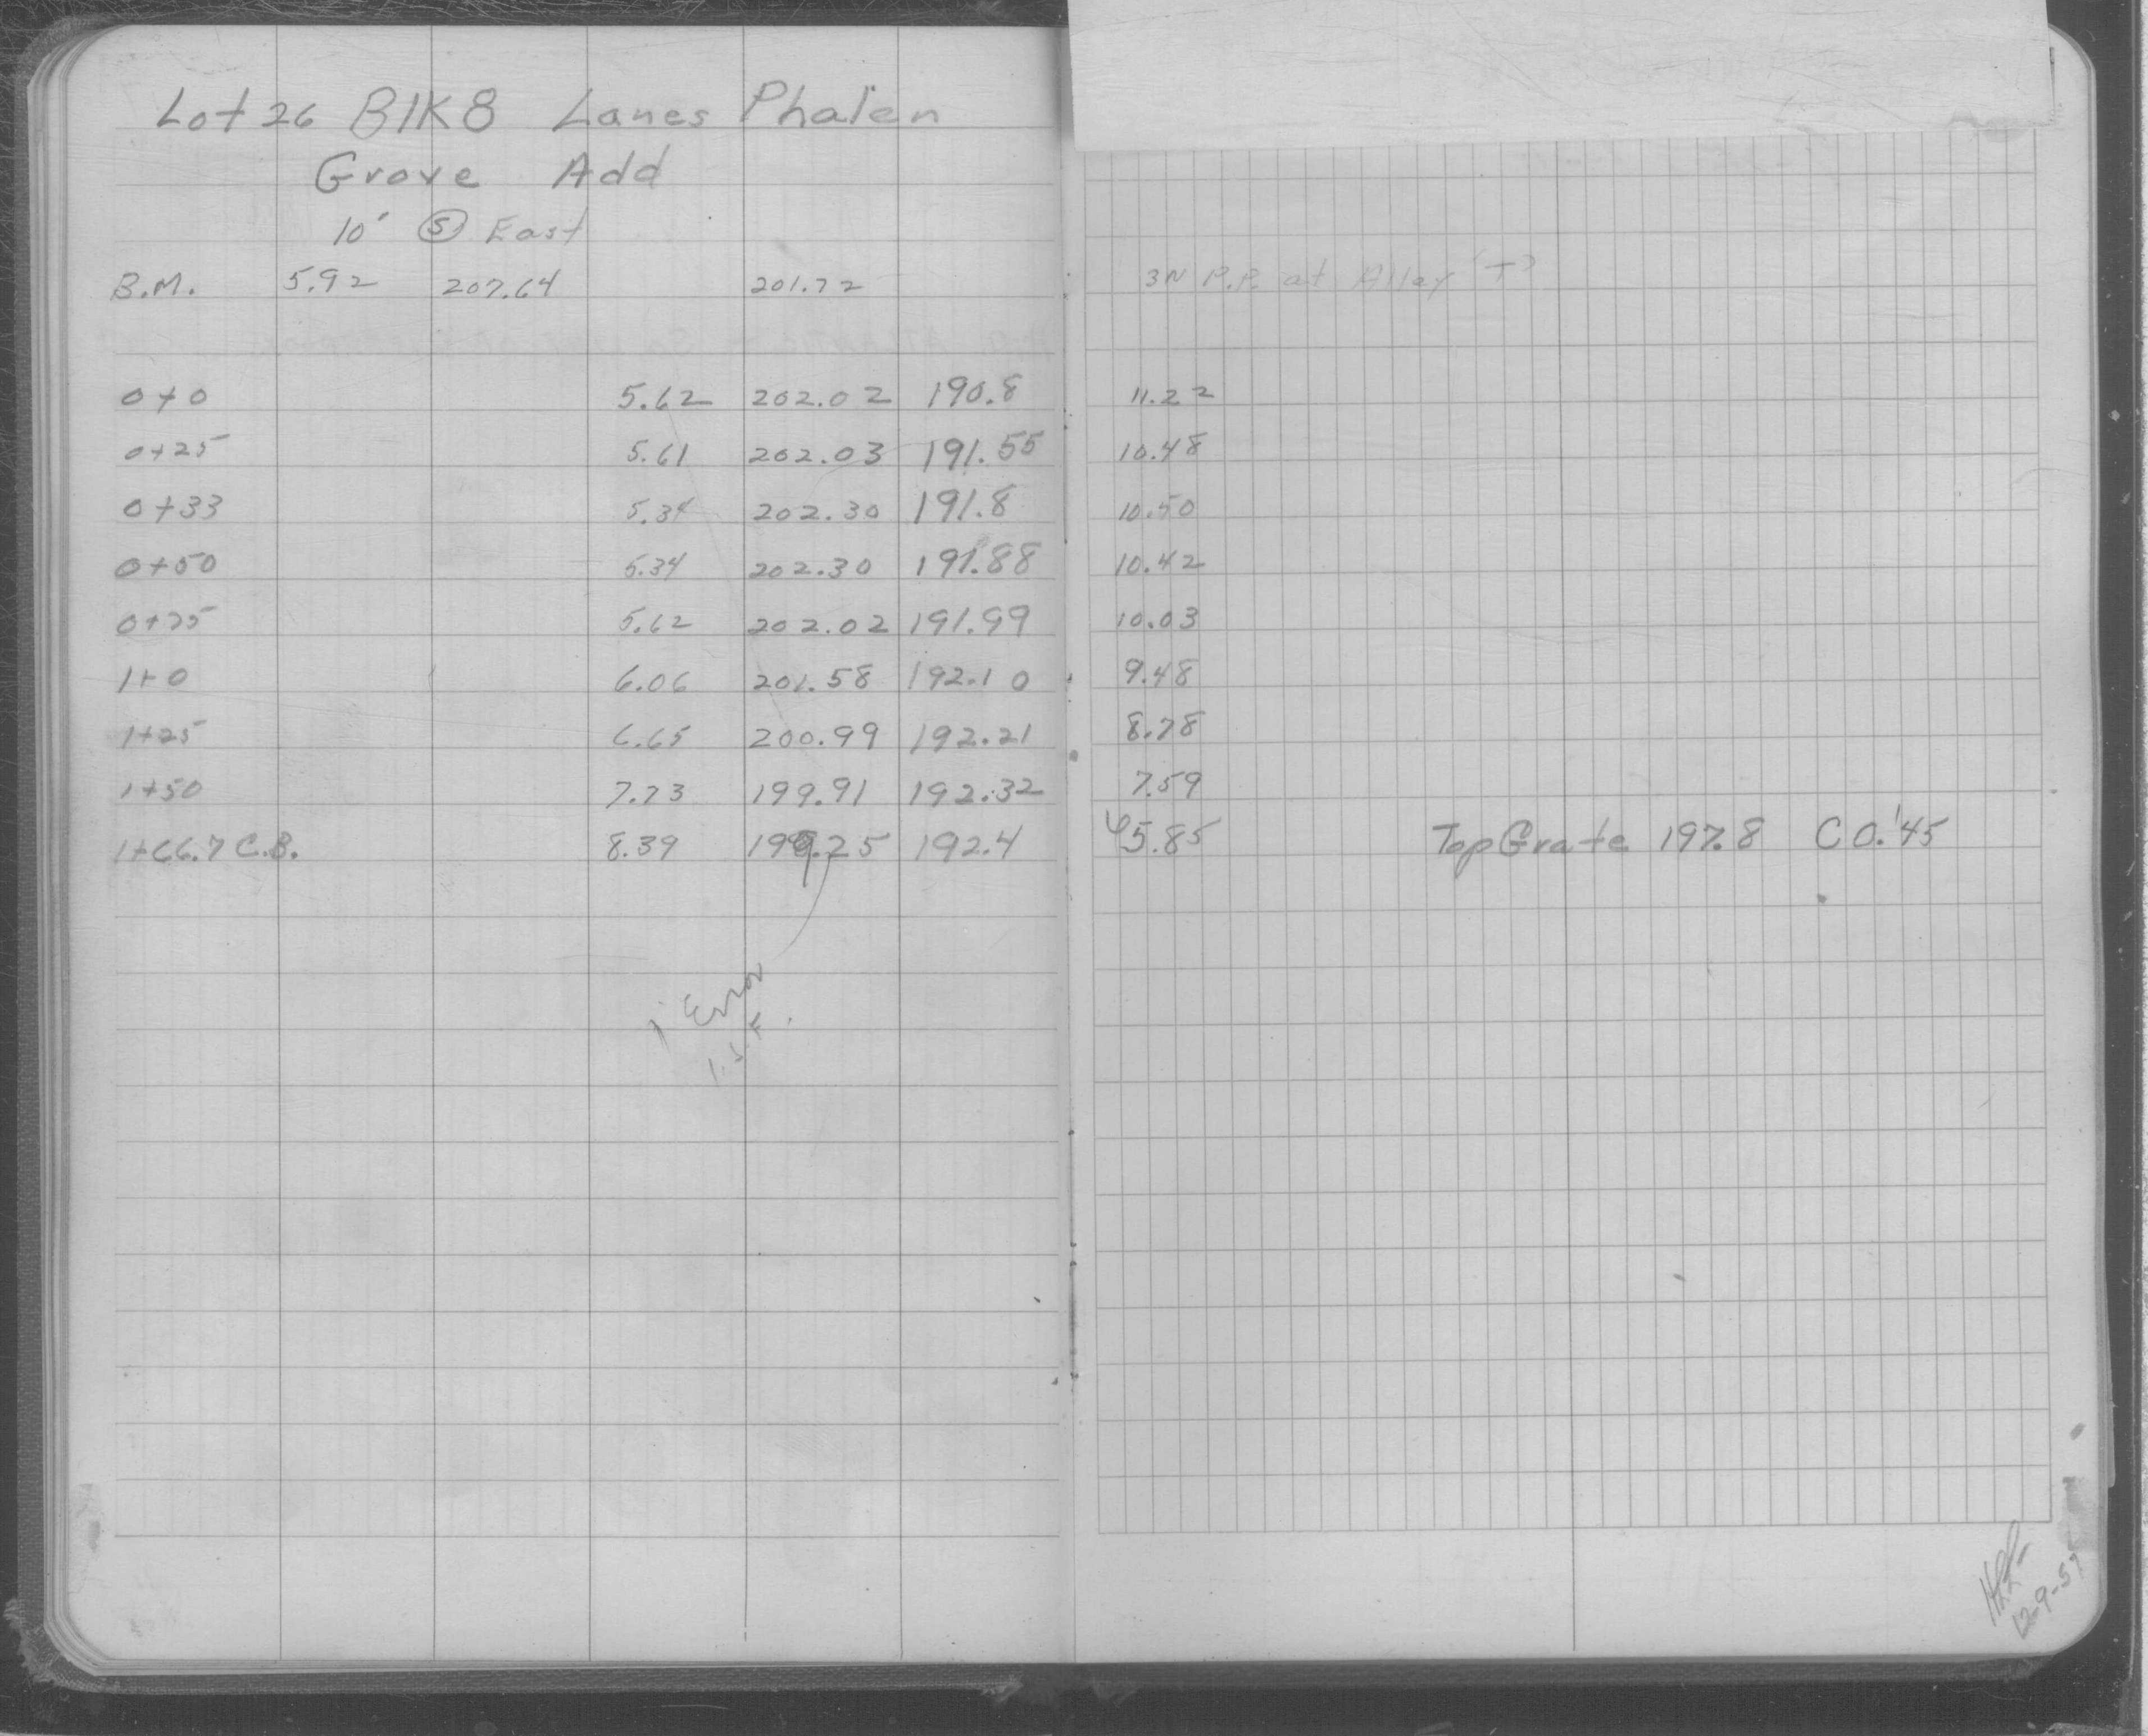 Lot 26 Blk 8 Lanes Phalen
Grove Add
10' (S) East
B.M. 5.92 207.64 201.72 3N P.P. at Alley "T"
0+0 5.62 202.02 190.8 11.22
0+25 5.61 202.03 191.55 10.48
0+33 5.34 202.30 191.8 10.50
0+50 5.34 202.30 191.88 10.42
0+75 5.62 202.02 191.99 10.03
1+0 6.06 201.58 192.10 9.48
1+25 6.65 200.99 192.21 8.78
1+50 7.73 199.91 192.32 7.59
1+66.7 C.B. 8.39 199.25 192.4 5.85 Top Grate 197.8 C 0.'45
1' Error
12-9-57